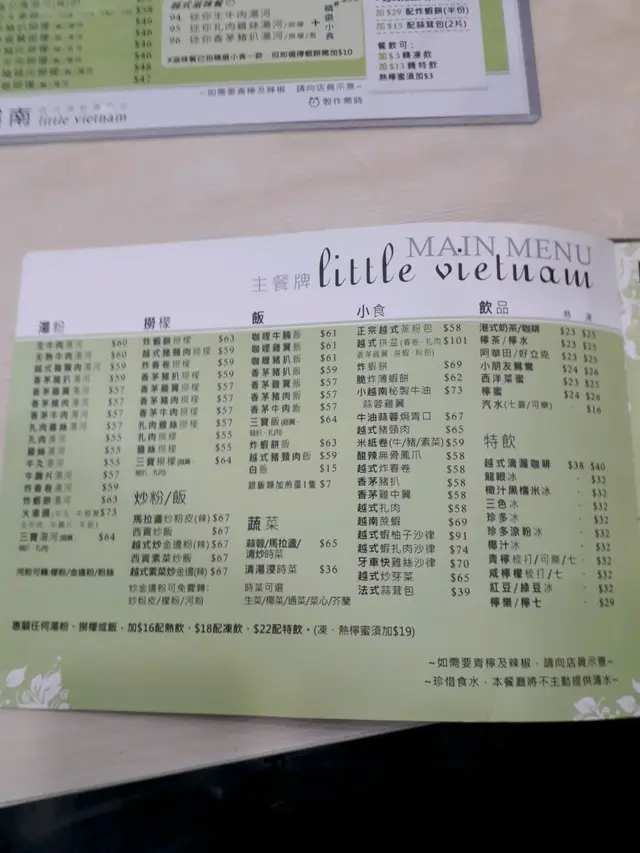 越式滋味餐
94. 迷你生牛肉湯河
95. 迷你扎肉雞絲湯河/撈檬
96. 迷你香茅豬扒湯河/撈檬/飯
+
精選小食
加 $29 配炸蝦餅(半份)
加 $15 配蒜茸包(2片)
餐飲可:
加 $3 轉凍飲
加 $13 轉特飲
熱檸蜜須加$3
$46
$47
南
little vietnam
~如需要青檸及辣椒,請向店員示意~
製作需時
主餐牌 MAIN MENU
little vietnam
湯粉
生牛肉湯河 $60
生熟牛肉湯河 $60
越式豬頸肉湯河 $59
香茅豬扒湯河 $59
香茅雞翼湯河 $57
香茅豬肉湯河 $57
香茅牛肉湯河 $57
扎肉雞絲湯河 $57
扎肉湯河 $55
雞絲湯河 $55
牛丸湯河 $55
牛腩片湯河 $57
炸春卷湯河 $59
炸蝦餅湯河 $63
火車頭 $73
三寶湯河 $64
河粉可轉:檬粉/金邊粉/粉絲
撈檬
炸蝦餅撈檬 $63
越式豬頸肉撈檬 $59
炸春卷撈檬 $59
香茅豬扒撈檬 $59
香茅雞翼撈檬 $57
香茅豬肉撈檬 $57
香茅牛肉撈檬 $57
扎肉雞絲撈檬 $57
扎肉撈檬 $55
雞絲撈檬 $55
三寶撈檬 $64
炒粉/飯
馬拉盞炒粉皮(辣) $67
西貢炒飯 $67
越式炒金邊粉(辣) $67
西貢素菜炒飯 $67
越式素菜炒金邊粉(辣) $67
炒金邊粉可免費轉:
炒粉皮/檬粉/河粉
飯
咖喱牛腩飯 $61
咖喱雞翼飯 $61
咖喱豬扒飯 $61
香茅豬扒飯 $59
香茅雞翼飯 $57
香茅豬肉飯 $57
香茅牛肉飯 $57
三寶飯 $64
炸蝦餅飯 $63
越式豬頸肉飯 $59
白飯 $15
跟飯類加煎蛋1隻 $7
蔬菜
蒜蓉/馬拉盞/
清炒時菜 $65
清湯浸時菜 $36
時菜可選
生菜/椰菜/通菜/菜心/芥蘭
小食
正宗越式蒸粉包 $58
越式拼盆(春卷、扎肉、 $101
香茅雞翼、蔗蝦、粉包)
炸蝦餅 $69
脆炸薄蝦餅 $62
小越南秘製牛油 $73
蒜蓉雞翼
牛油蒜蓉焗青口 $67
越式豬頸肉 $65
米紙卷(牛/豬/素菜) $59
酸辣無骨鳳爪 $58
越式炸春卷 $58
香茅豬扒 $58
香茅雞中翼 $58
越式扎肉 $58
越南蔗蝦 $69
越式蝦柚子沙律 $91
越式蝦扎肉沙律 $74
牙車快雞絲沙律 $70
越式炒芽菜 $65
法式蒜茸包 $39
飲品 熱 凍
港式奶茶/咖啡 $23 $25
檸茶/檸水 $23 $25
阿華田/好立克 $23 $25
小朋友鴛鴦 $24 $26
西洋菜蜜 $23 $25
檸蜜 $24 $26
汽水(七喜/可樂) $16
特飲
越式滴漏咖啡 $38 $40
龍眼冰 - $32
椰汁黑糯米冰 - $32
三色冰 - $32
珍多冰 - $32
珍多涼粉冰 - $32
椰汁冰 - $32
青檸梳打/可樂/七 - $32
咸檸檬梳打/七 - $32
紅豆/綠豆冰 - $32
檸樂/檸七 - $29
惠顧任何湯粉、撈檬或飯,加$16配熱飲、$18配凍飲、$22配特飲。(凍、熱檸蜜須加$19)
~如需要青檸及辣椒,請向店員示意~
~珍惜食水,本餐廳將不主動提供清水~